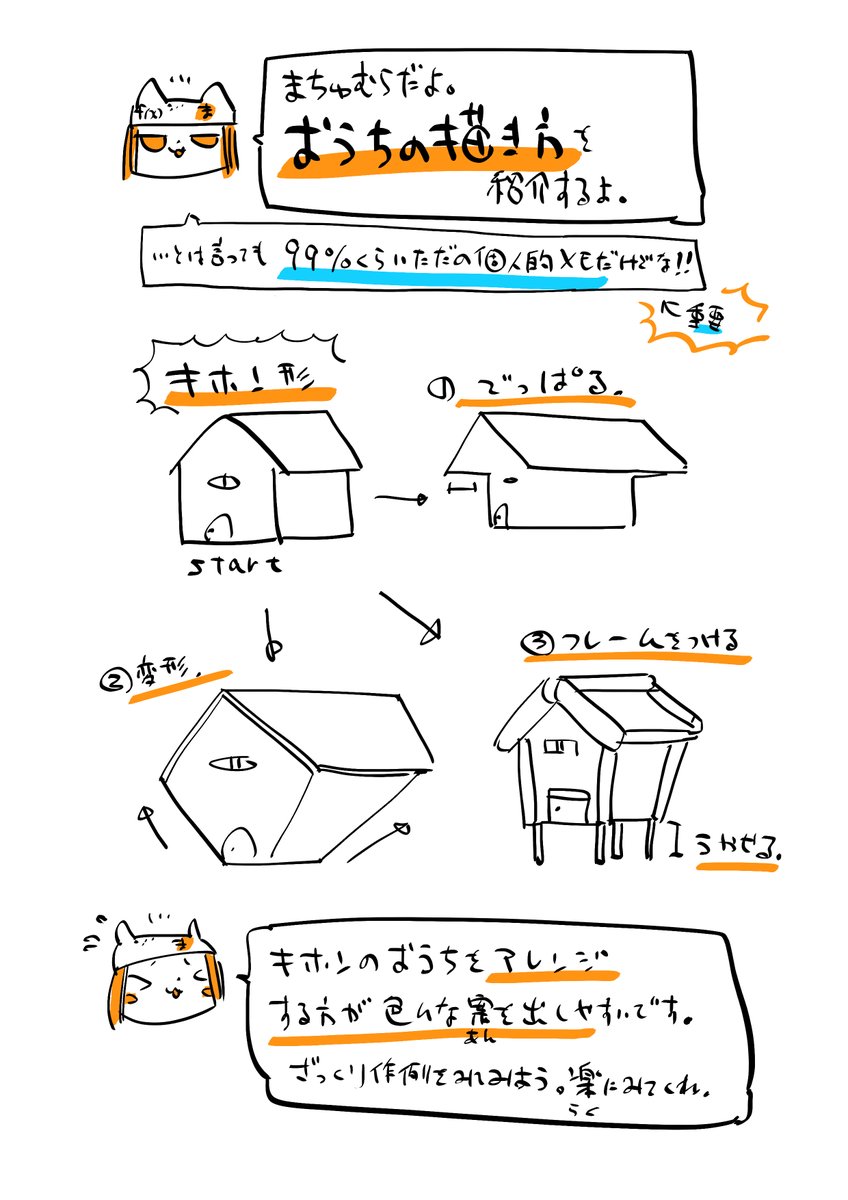 f(x) ま
まちゅむらだよ。
おうちの描き方を
紹介するよ。
…とは言っても 99%くらいただの個人的メモだけどな!!
←重要
キホン形
① でっぱる。
start
②変形。
③フレームをつける
うかせる。
ま
キホンのおうちをアレンジ
する方が色んな案を出しやすいです。
あん
ざっくり作例をみてみよう。楽にみてくれ。
らく